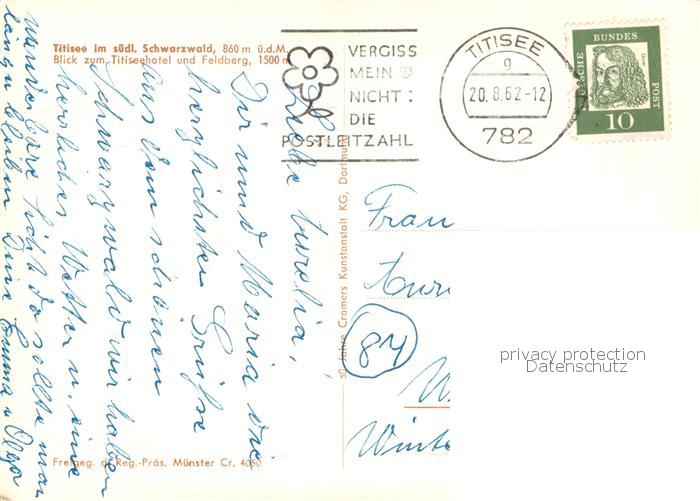 Titisee im südl. Schwarzwald, 860 m ü.d.M.
Blick zum Titiseehotel und Feldberg, 1500 m
VERGISS
MEIN
NICHT :
DIE
POSTLEITZAHL
TITISEE
g
20.8.62-12
782
DEUTSCHE BUNDES POST
Dürer
10
Liebe Aurelia,
Dir und Maria die
herzlichsten Grüße
aus dem schönen
Schwarzwald wir haben
herrliches Wetter u. eine
wunderbare Sicht da sollte man
länger bleiben Deine Emma u Olga
50 Jahre Cramers Kunstanstalt KG, Dortmund
Frau
84
Freigeg. d. Reg.-Präs. Münster Cr. 4050
privacy protection
Datenschutz